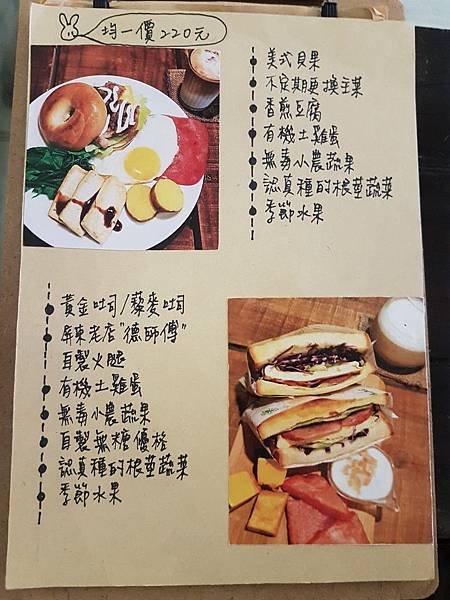 均一價220元
美式貝果
不定期更換主菜
香煎豆腐
有機土雞蛋
無毒小農蔬果
認真種的根莖蔬菜
季節水果
黃金吐司/藜麥吐司
屏東老店"德師傅"
自製火腿
有機土雞蛋
無毒小農蔬果
自製無糖優格
認真種的根莖蔬菜
季節水果